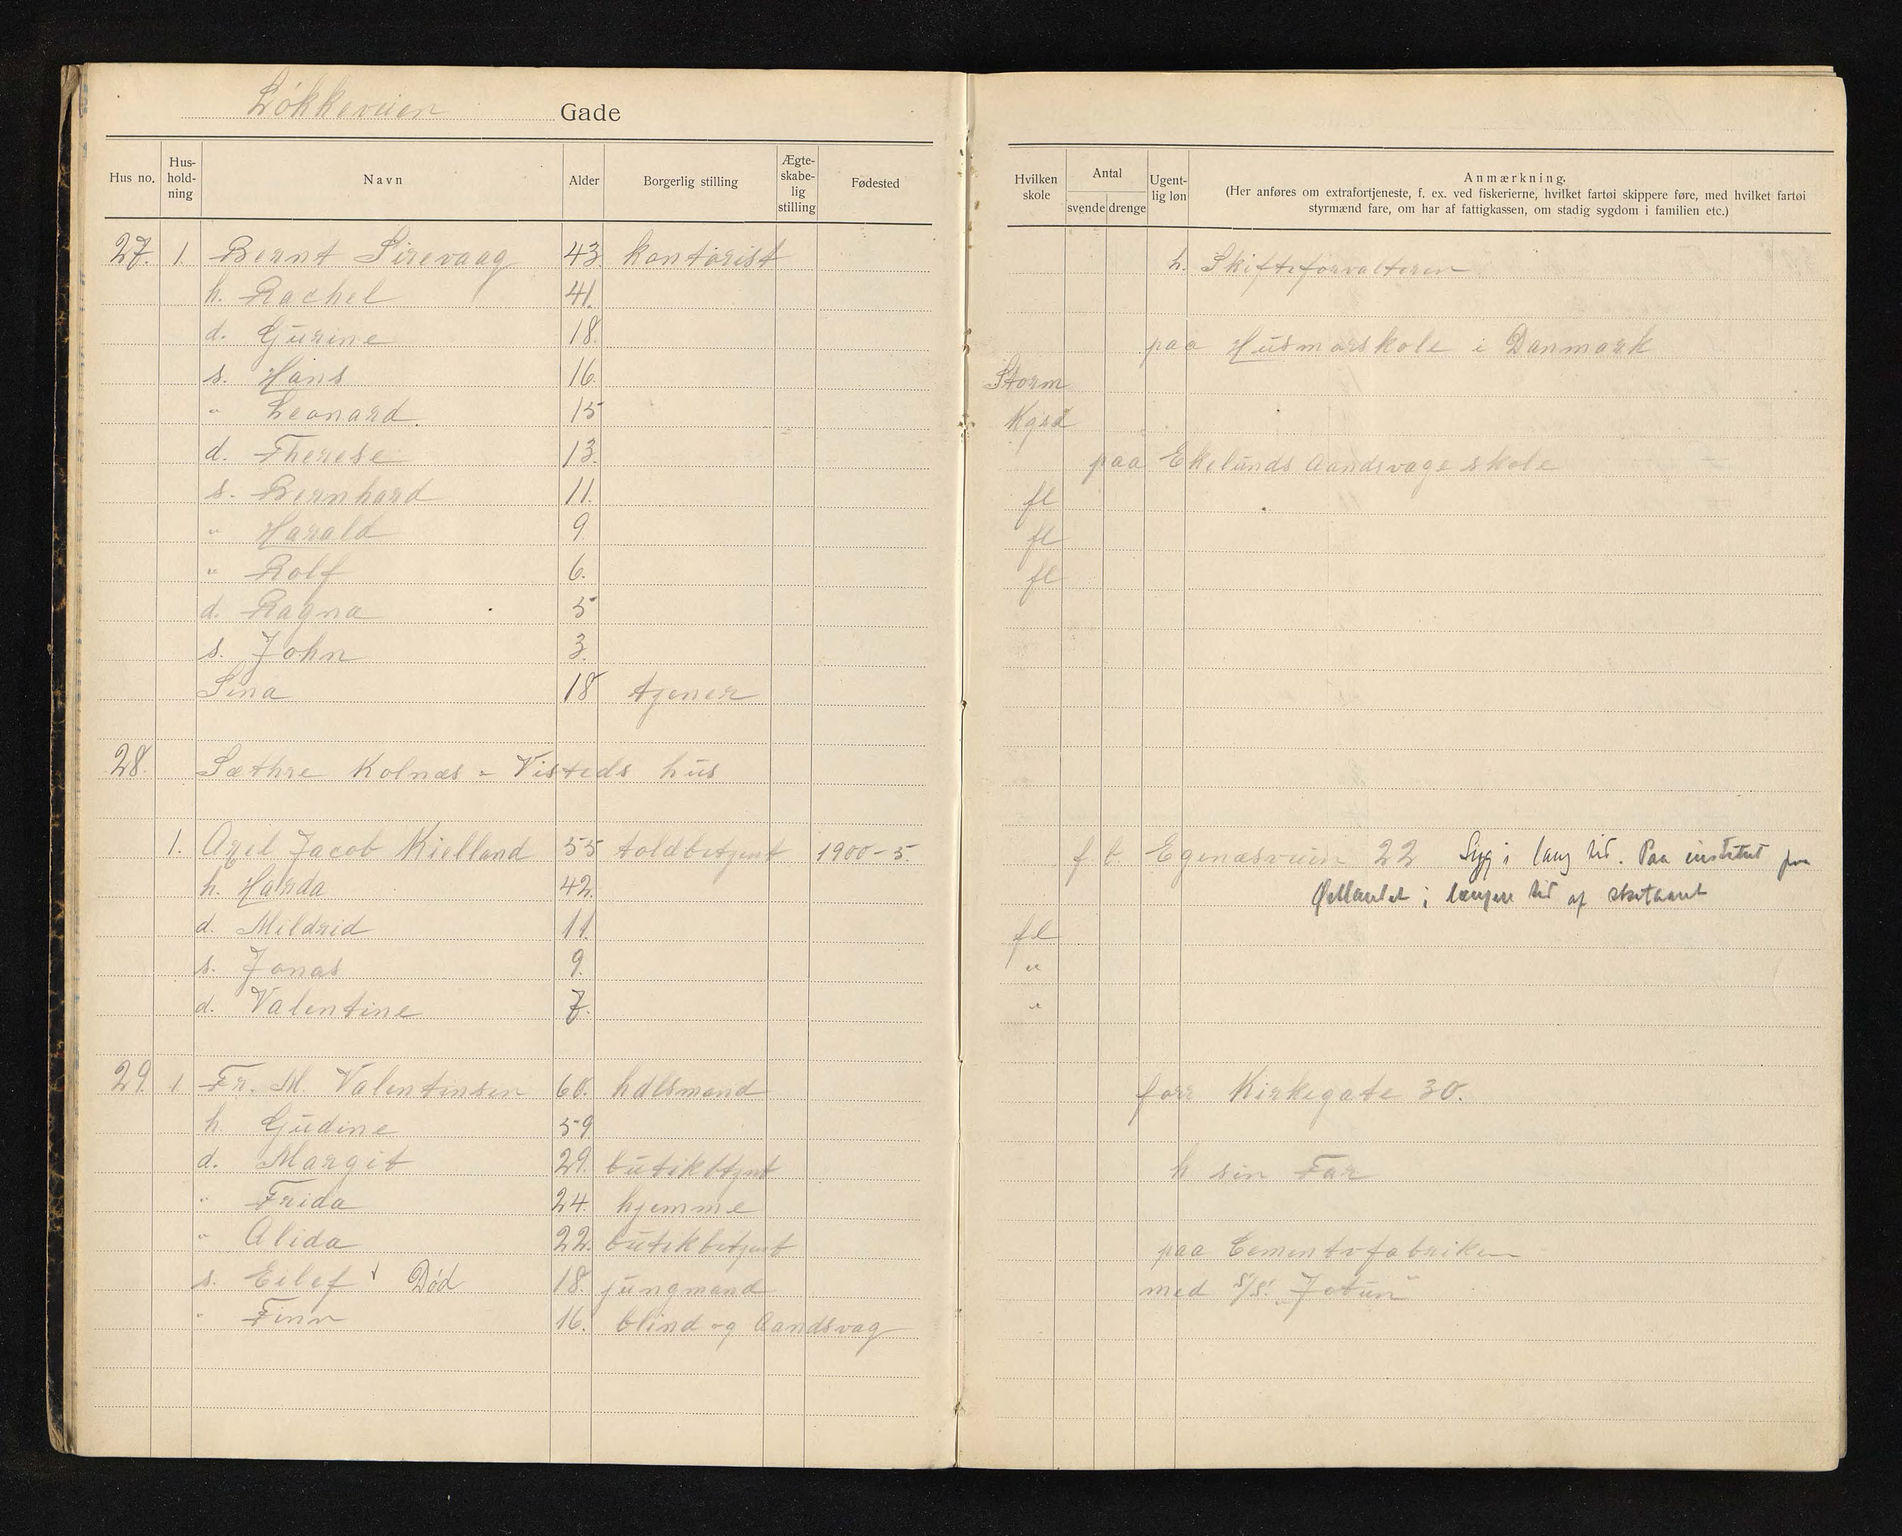 Løkkeveien Gade
Hus no. Hus-hold-ning Navn Alder Borgerlig stilling Ægte-skabe-lig stilling Fødested
27. 1. Bernt Sirevaag 43. kontorist
h. Rachel 41.
d. Gurine 18.
s. Hans 16.
" Leonard. 15
d. Therese 13.
s. Bernhard 11.
" Harald 9
" Rolf 6.
d. Ragna 5
s. John 3.
Sina 18 tjener
28. Sæthre Kolnæs - Visteds hus
1. Axel Jacob Kielland 55 toldbetjent 1900-5.
h. Handa 42.
d. Mildrid 11.
s. Jonas 9.
d. Valentine 7.
29. 1. Fr. M. Valentinsen 60. hdlsmand
h. Gudine 59
d. Margit 29. butikbtjnt
" Frida 24. hjemme
" Alida 22. butikbetjent
s. Eilef Død 18. jungmand
" Finn 16. blind og Aandsvag
Hvilken skole Antal svende drenge Ugent-lig løn Anmærkning.
(Her anføres om extrafortjeneste, f. ex. ved fiskerierne, hvilket fartøi skippere føre, med hvilket fartøi
styrmænd fare, om har af fattigkassen, om stadig sygdom i familien etc.)
h. Skifteforvalteren
paa Husmorskole i Danmark
Storm
Kgsd
paa Ekelunds Aandsvage skole
fl
fl
fl
f. b. Egenæsveien 22 Syg i lang tid. Paa institut paa
Østlandet i længere tid af
fl
"
"
forr Kirkegate 30.
h sin Far
paa Cementvfabriken
med S/S. "Jotun"